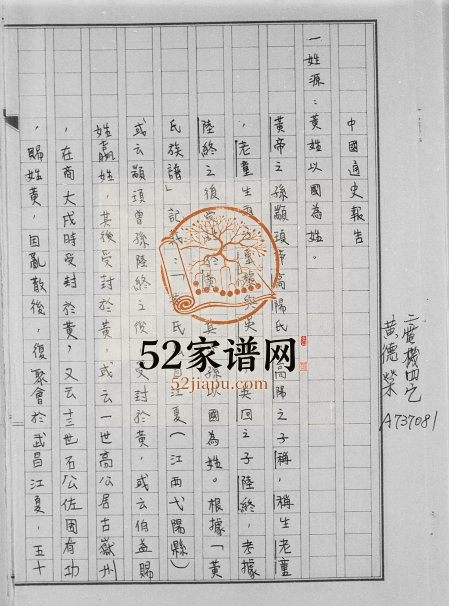 中國通史報告
一姓源：黃姓以國為姓。
黃帝之孫顓頊帝高陽氏 高陽之子稱，稱生老童
，老童生 重黎 吳回之子陸終，考據
陸終之後 黃 孫以國為姓。根據「黃
氏族譜」記 氏 江夏（江西弋陽縣）
或云顓頊曾孫陸終之後 受封於黃，或云伯益賜
姓嬴姓，其後受封於黃，或云一世高公居古嶽州
，在商大戊時受封於黃，又云十三世石公佐周有功
，賜姓黃，因亂散後，復聚會於武昌江夏，五十
黃德榮
A737081
52家谱网
52jiapu.com